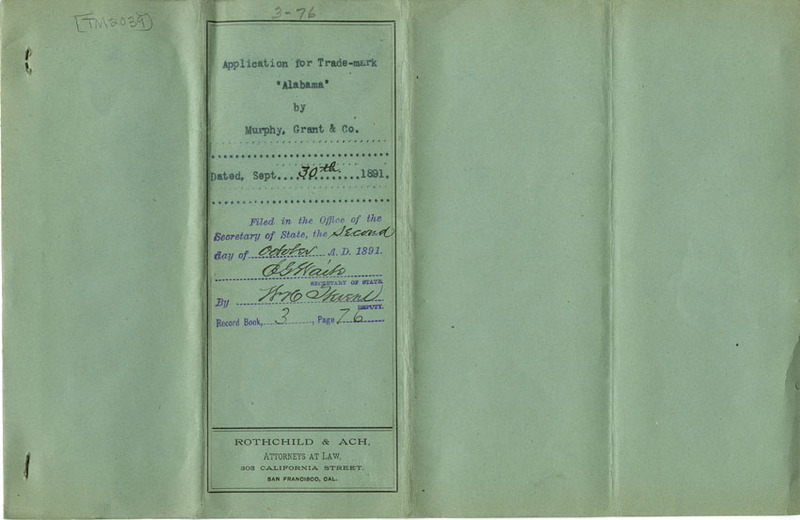 [TM2039]
3-76
Application for Trade-mark
"Alabama"
by
Murphy, Grant & Co.
Dated, Sept....30th........1891.
Filed in the Office of the
Secretary of State, the Second
day of October A. D. 1891.
E G Waite
SECRETARY OF STATE.
By W H Stevens
DEPUTY.
Record Book, 3, Page 76
ROTHCHILD & ACH,
ATTORNEYS AT LAW,
303 CALIFORNIA STREET.
SAN FRANCISCO, CAL.